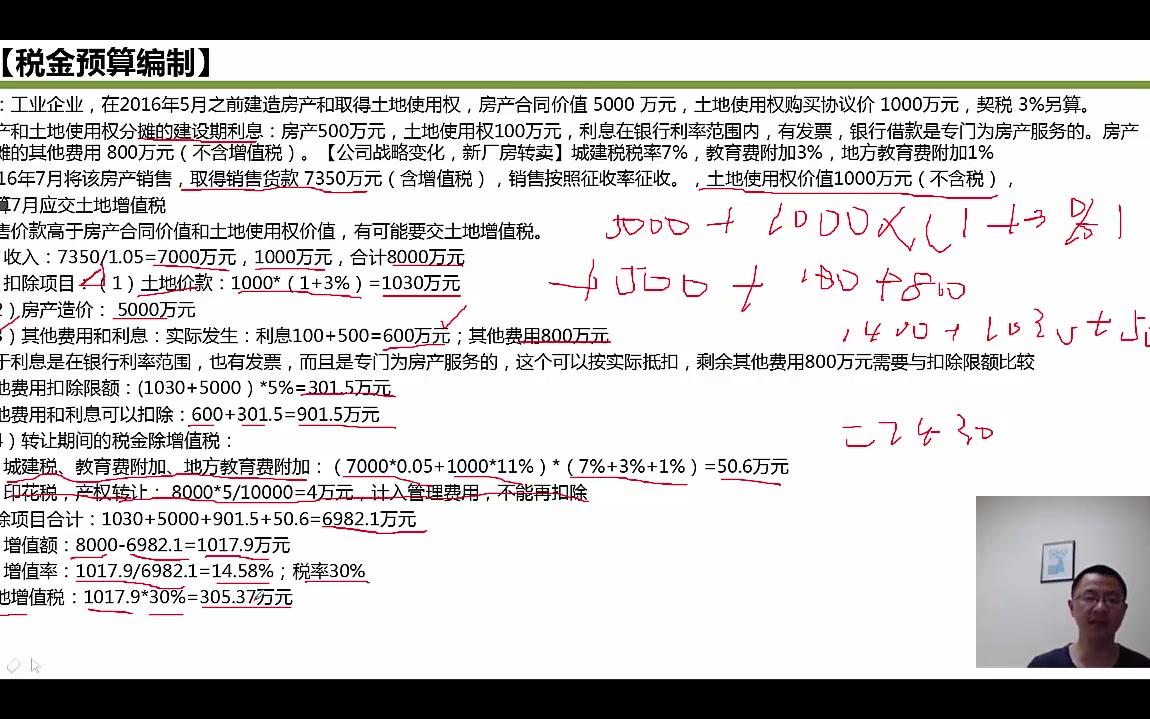 【税金预算编制】
：工业企业，在2016年5月之前建造房产和取得土地使用权，房产合同价值 5000 万元，土地使用权购买协议价 1000万元，契税 3%另算。
产和土地使用权分摊的建设期利息：房产500万元，土地使用权100万元，利息在银行利率范围内，有发票，银行借款是专门为房产服务的。房产
摊的其他费用 800万元（不含增值税）。【公司战略变化，新厂房转卖】城建税税率7%，教育费附加3%，地方教育费附加1%
16年7月将该房产销售，取得销售货款 7350万元（含增值税），销售按照征收率征收。，土地使用权价值1000万元（不含税），
算7月应交土地增值税
售价款高于房产合同价值和土地使用权价值，有可能要交土地增值税。
收入：7350/1.05=7000万元，1000万元，合计8000万元
扣除项目：（1）土地价款：1000*（1+3%）=1030万元
2）房产造价： 5000万元
3）其他费用和利息：实际发生：利息100+500=600万元；其他费用800万元
于利息是在银行利率范围，也有发票，而且是专门为房产服务的，这个可以按实际抵扣，剩余其他费用800万元需要与扣除限额比较
他费用扣除限额：(1030+5000）*5%=301.5万元
他费用和利息可以扣除：600+301.5=901.5万元
4）转让期间的税金除增值税：
城建税、教育费附加、地方教育费附加：（7000*0.05+1000*11%）*（7%+3%+1%）=50.6万元
印花税，产权转让： 8000*5/10000=4万元，计入管理费用，不能再扣除
除项目合计：1030+5000+901.5+50.6=6982.1万元
增值额：8000-6982.1=1017.9万元
增值率：1017.9/6982.1=14.58%；税率30%
地增值税：1017.9*30%=305.37万元
5000 + 1000×(1+3%)
+500 + 100 +800
1400 + 1030+50
=7430